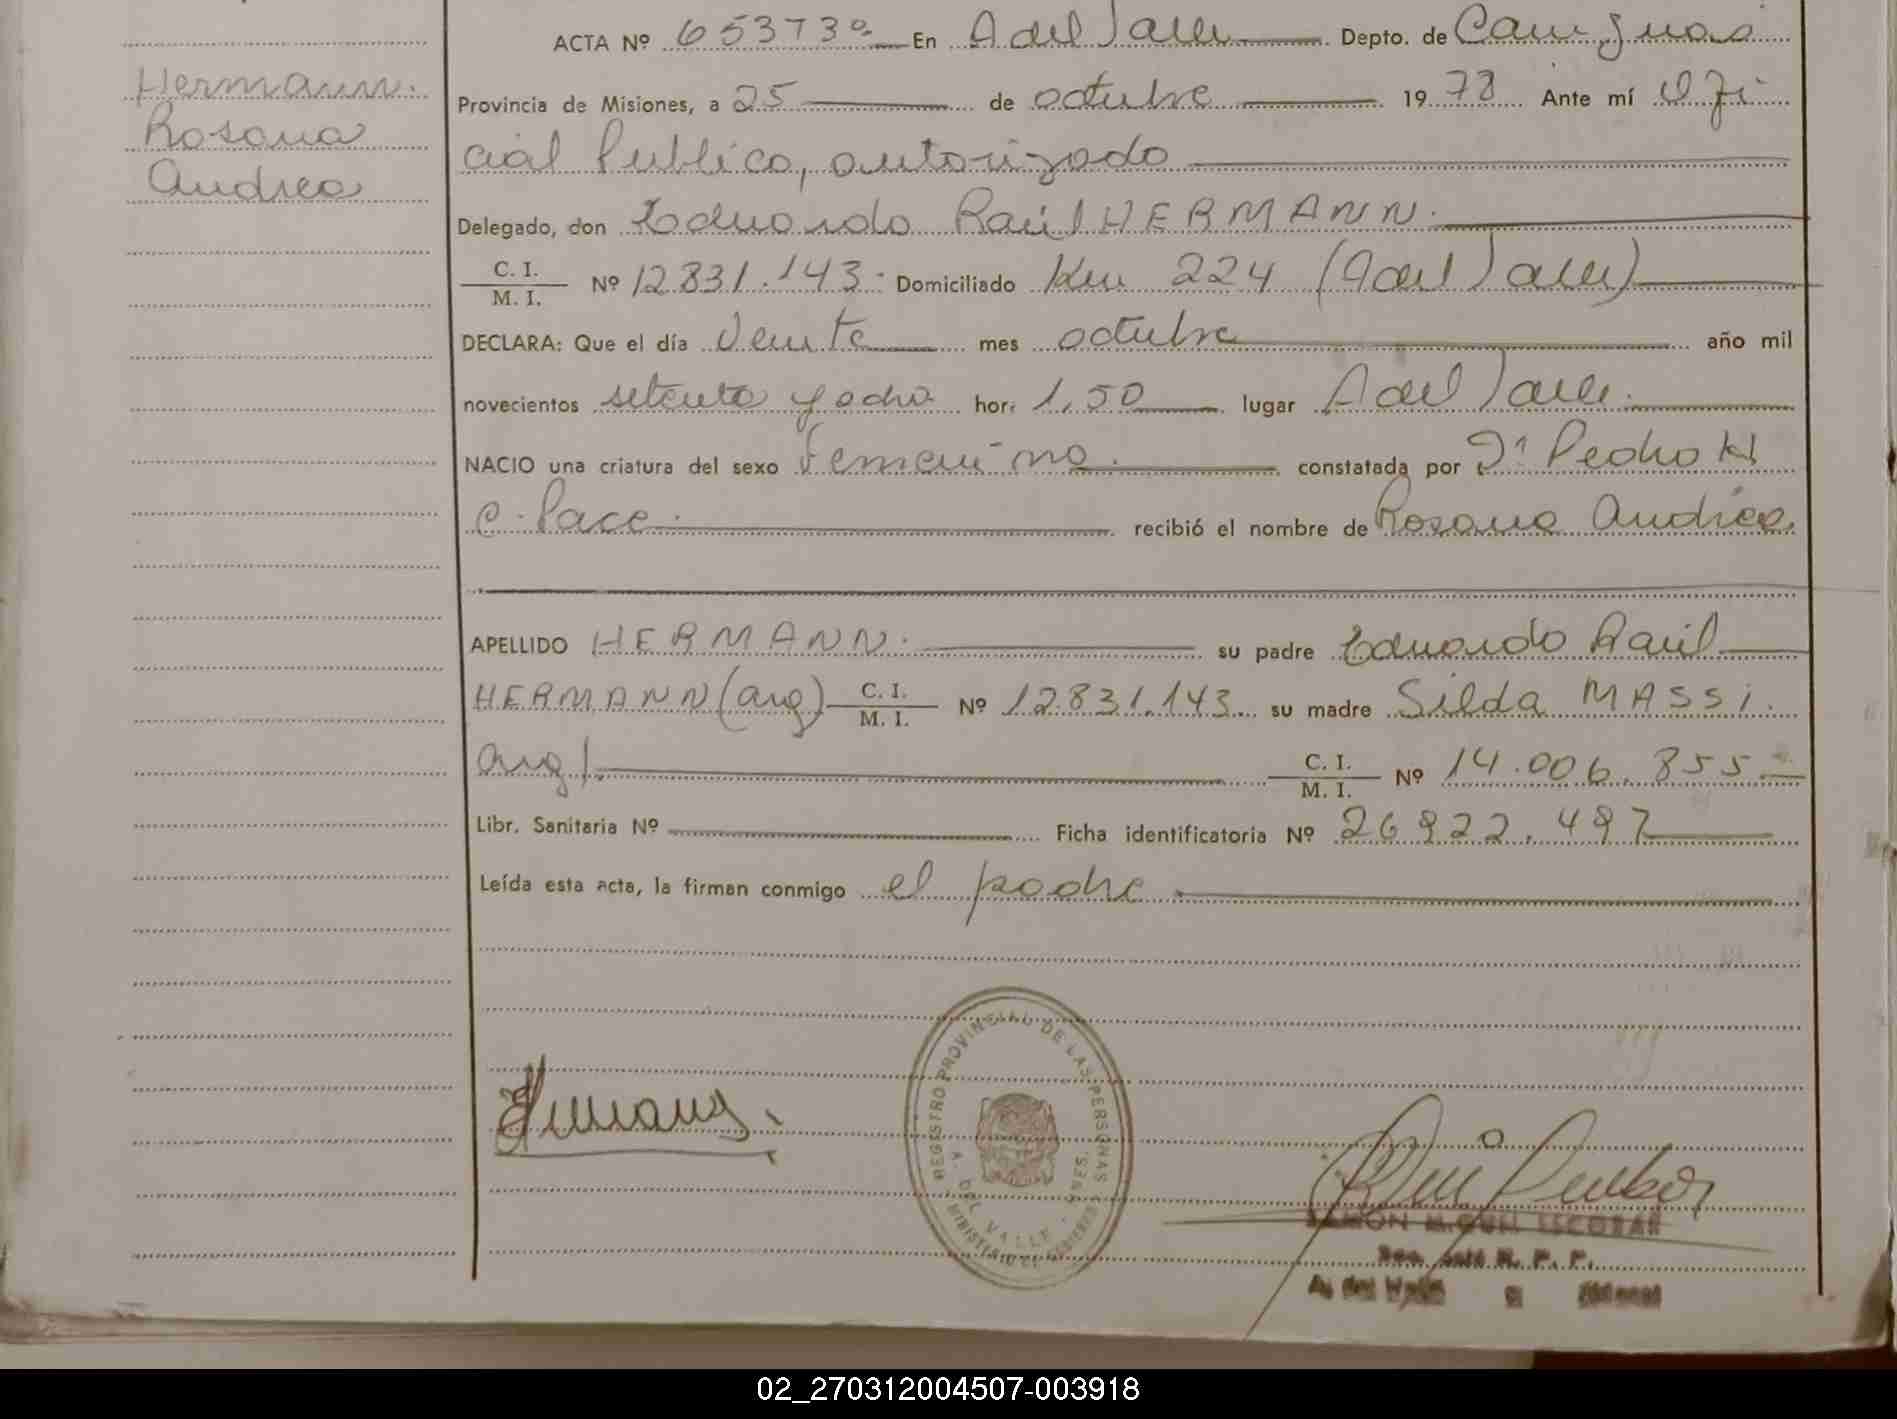 Hermann.
Rosana
Andrea
ACTA Nº 653730 En A del Valle Depto. de Cainguas
Provincia de Misiones, a 25 de octubre 1978 Ante mí Ofi
cial Publico, autorizado
Delegado, don Eduardo Raúl HERMANN.
C. I.
M. I. Nº 12.831.143. Domiciliado Km 224 (A del Valle)
DECLARA: Que el día veinte mes octubre año mil
novecientos setenta y ocho hor: 1,50 lugar A del Valle.
NACIO una criatura del sexo femenino. constatada por Dr Pedro H
C. Pace. recibió el nombre de Rosana Andrea.
APELLIDO HERMANN. su padre Eduardo Raúl
HERMANN (arg) C. I.
M. I. Nº 12.831.143. su madre Silda MASSI.
arg). C. I.
M. I. Nº 14.006.855
Libr. Sanitaria Nº Ficha identificatoria Nº 26.922.497
Leída esta acta, la firman conmigo el padre
REGISTRO PROVINCIAL DE LAS PERSONAS
A. DEL VALLE - MNES.
MINISTERIO DE GOBIERNO
RAMON MIGUEL ESCOBAR
R. P. P.
A. del Valle
02_270312004507-003918